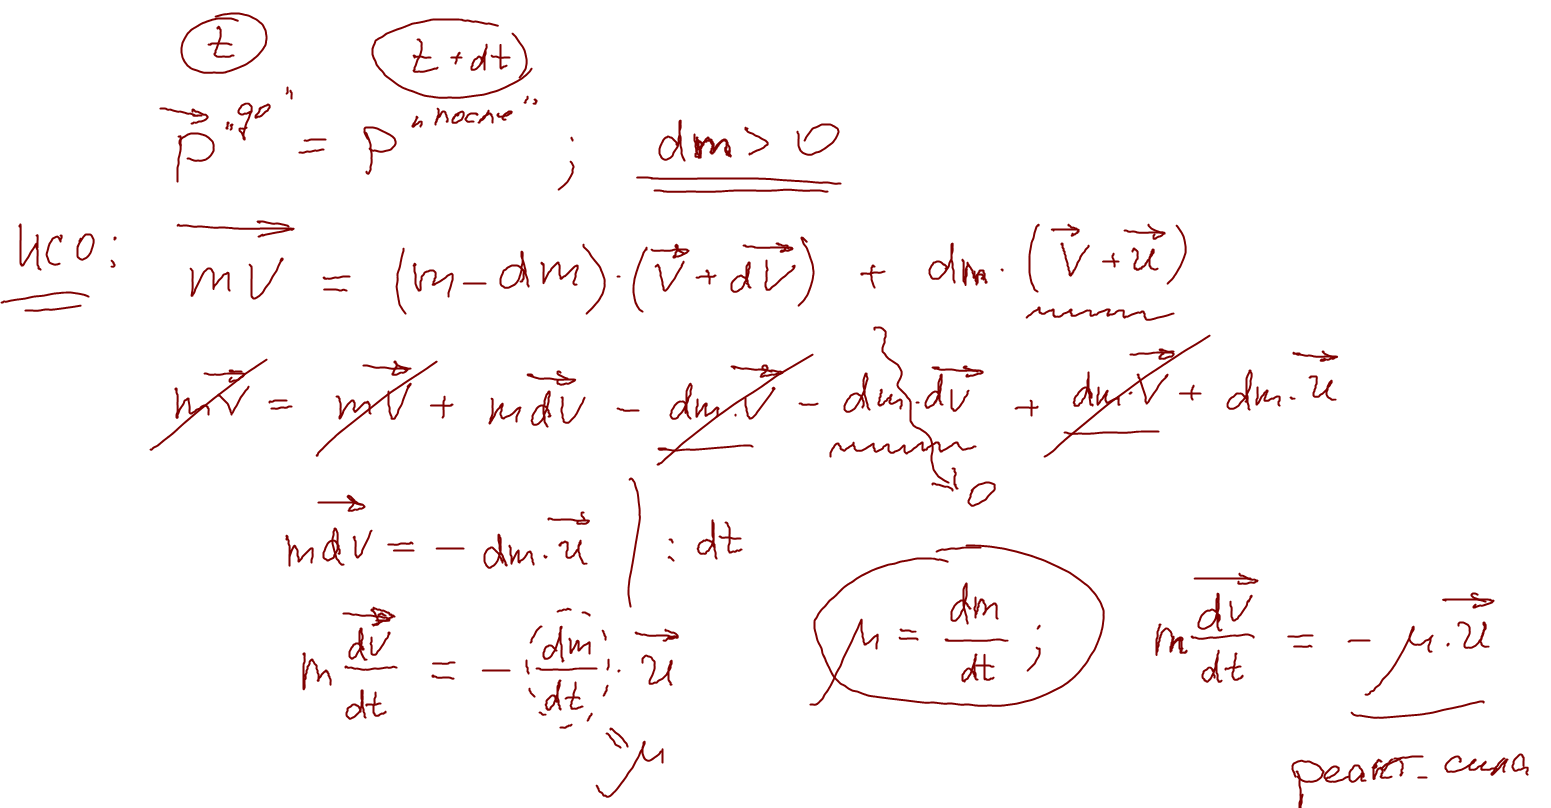 t t + dt
p⃗ "до" = p "после" ; dm > 0
ИСО: mV⃗ = (m - dm)·(V⃗ + dV⃗) + dm·(V⃗ + u⃗)
mV⃗ = mV⃗ + mdV⃗ - dm·V⃗ - dm·dV⃗ + dm·V⃗ + dm·u⃗
→ 0
mdV⃗ = - dm·u⃗ | : dt
m dV⃗/dt = - dm/dt · u⃗ μ = dm/dt ; m dV⃗/dt = - μ·u⃗
= μ
реакт. сила